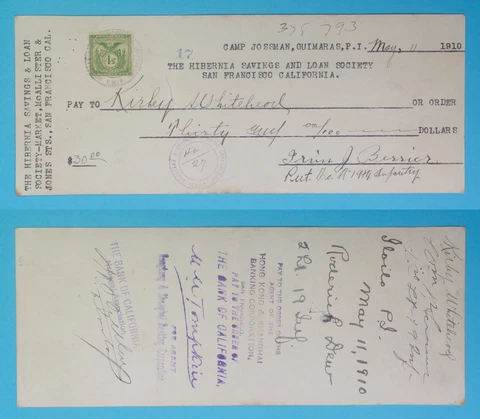 375 793
17
CAMP JOSSMAN, GUIMARAS, P.I. May, 11 1910
THE HIBERNIA SAVINGS AND LOAN SOCIETY
SAN FRANCISCO CALIFORNIA.
PAY TO Kirby Whitehood OR ORDER
Thirty and 00/100 DOLLARS
$30.00
Pvt. Co.
19th Infantry
THE HIBERNIA SAVINGS & LOAN
SOCIETY-MARKET, McALLISTER &
JONES STS., SAN FRANCISCO CAL.
Kirby Whitehood
19 Inf.
Iloilo P.I.
May 11, 1910
Roderick Dew
2 Lt. 19 Inf.
PAY TO THE ORDER OF THE
AGENT OF THE
HONG KONG & SHANGHAI
BANKING CORPORATION,
SAN FRANCISCO
PAY TO THE ORDER OF
THE BANK OF CALIFORNIA.
W M Tompkins
FOR AGENT
Hongkong & Shanghai Banking Corporation
THE BANK OF CALIFORNIA